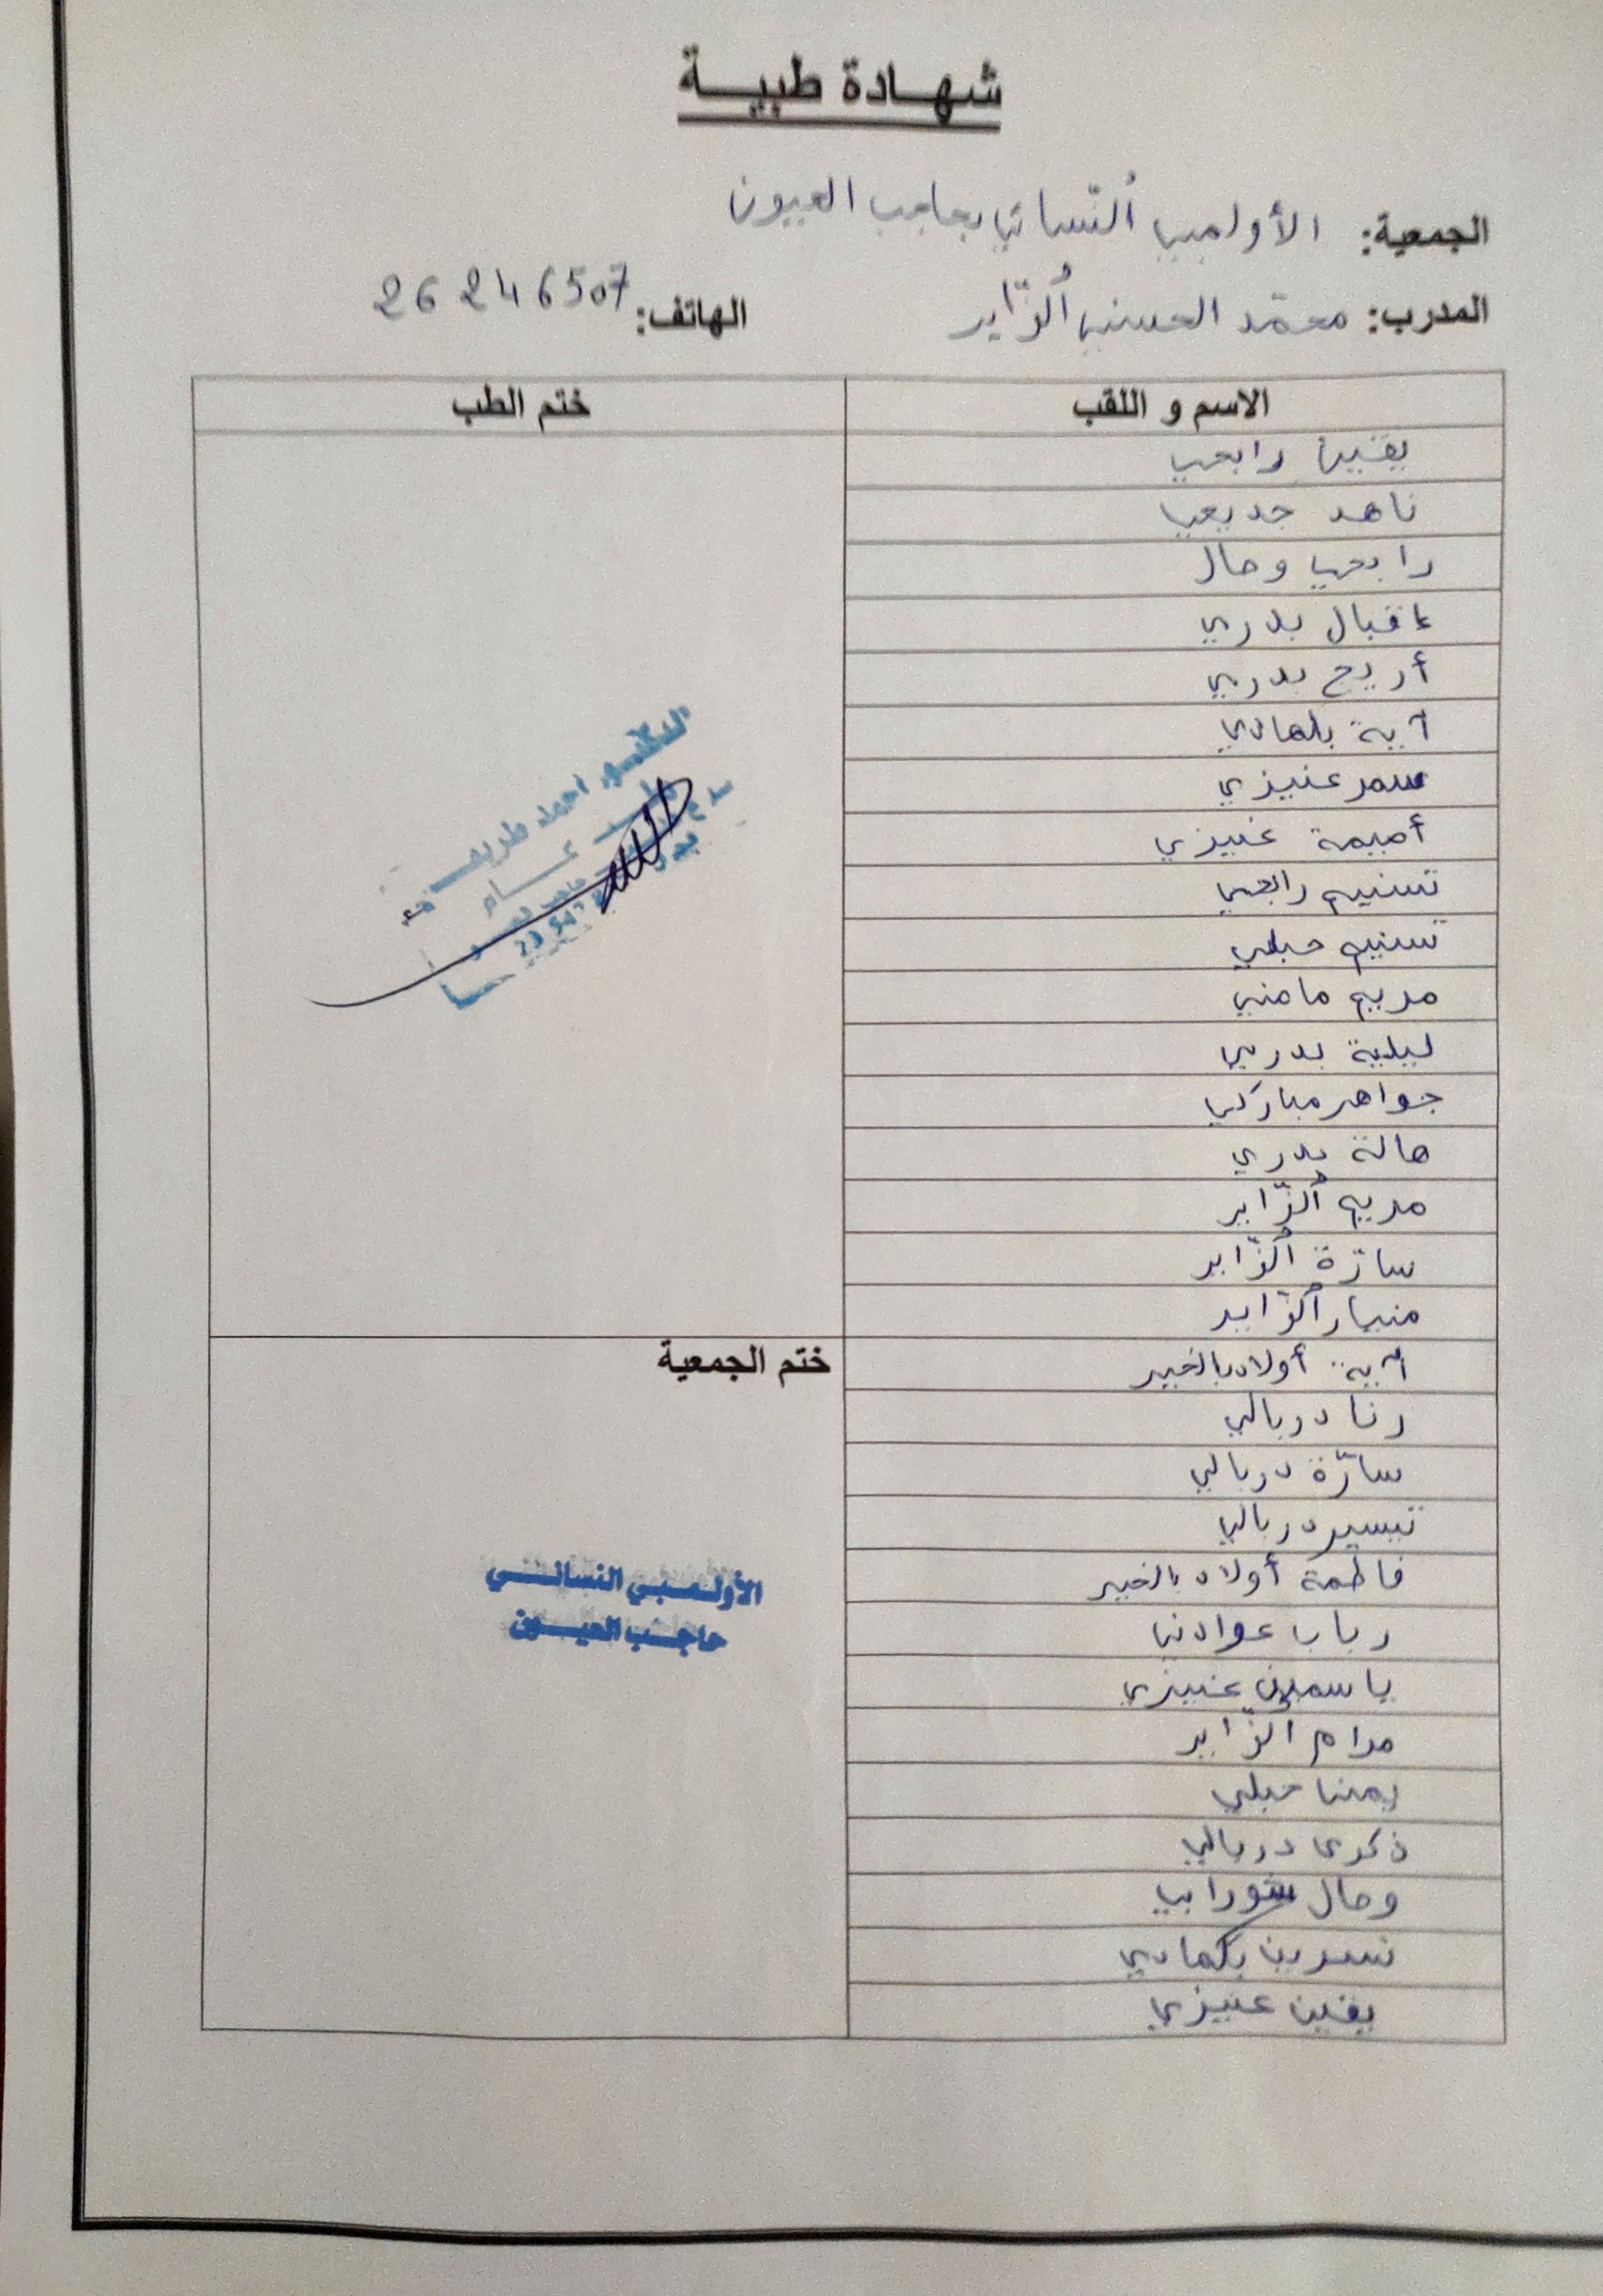 شهادة طبية
الجمعية: الأولمبي النّسائي بحاجب العيون
المدرب: محمّد الحسني الزّاير الهاتف: 26 246507
الاسم و اللقب ختم الطب
يقين رابحي
ناهد جديعي
رابحي وصال
إقبال بدري
أريج بدري
آية بلهادي
سمر عنيزي
أميمة عنيزي
تسنيم رابحي
تسنيم حبلي
مريم مامني
ليلية بدري
جواهر مباركي
هالة بدري
مريم الزّاير
سارّة الزّاير
منيار الزّاير
آية أولاد بالخير
ختم الجمعية
رنا دربالي
سارّة دربالي
تيسير دربالي
فاطمة أولاد بالخير
رباب عوادني
ياسمين عنيزي
مرام الزّاير
يمنا حبلي
ذكرى دربالي
وصال شورابي
نسرين بكهادي
يقين عنيزي
الدكتور احمد طريفة
عام
الأولمبي النسائي
حاجب العيون